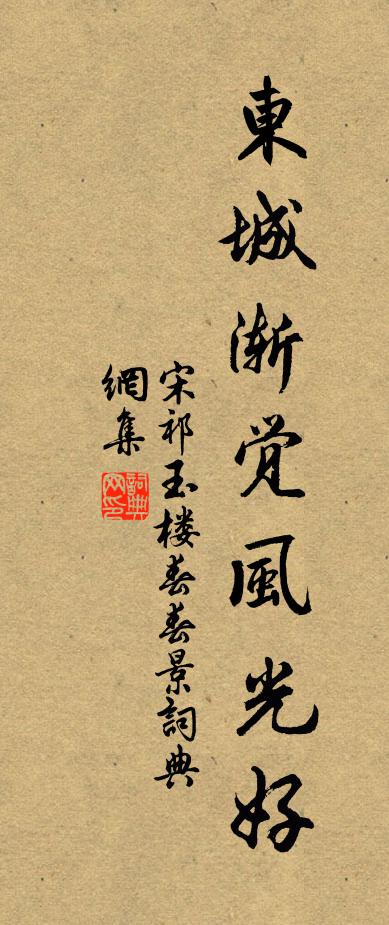 東城漸覺風光好
宋祁玉楼春春景詞典
網集
詞典
网印